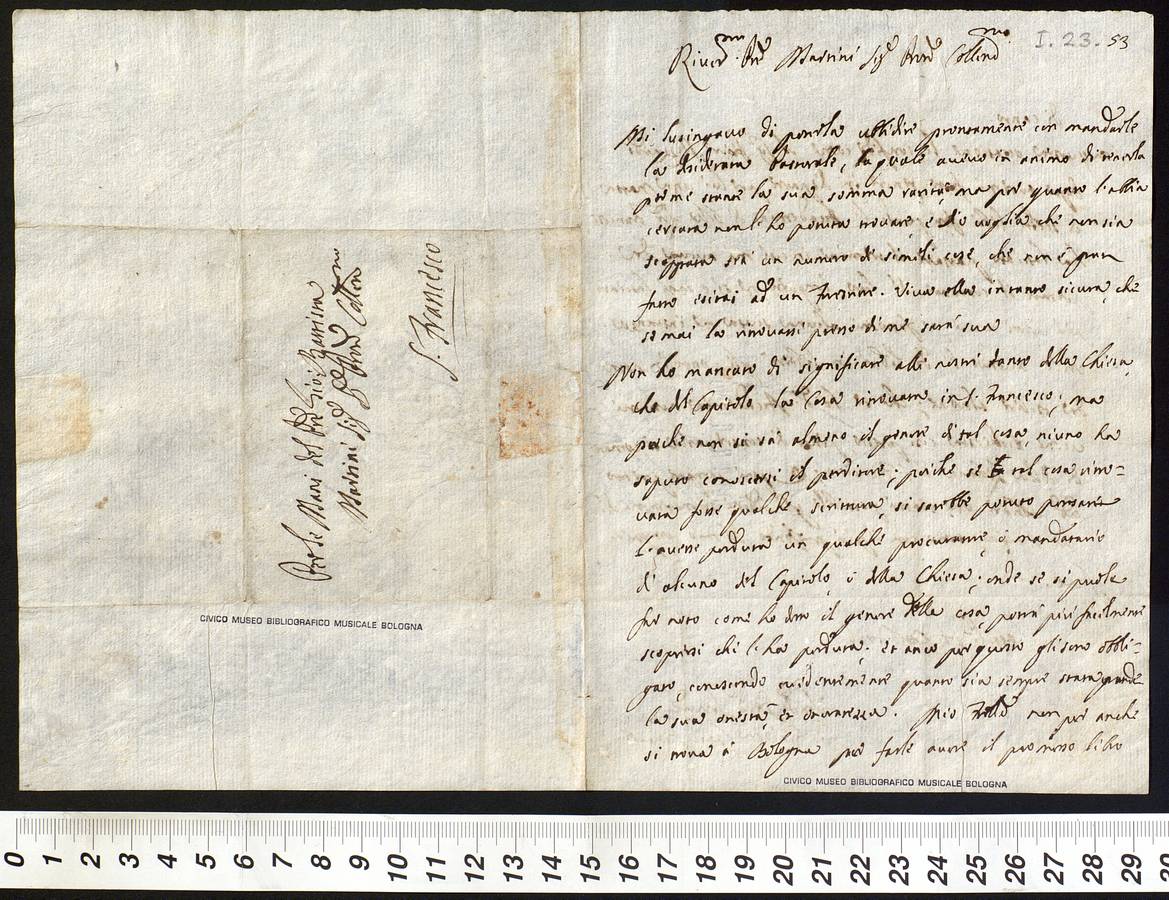 Per le Mani del Pre Gio: Battista
Martini Sigr Pre Pron Collen mo
S. Francesco
CIVICO MUSEO BIBLIOGRAFICO MUSICALE BOLOGNA
I. 23. 53
River mo Pre Martini Sigr Pron Collend mo
Mi lusingavo di poterla ubbidire prontamente con mandarle
la desiderata Pastorale, la quale avevo in animo di tenerla
per me stante la sua somma rarità, ma per quanto l'abbia
cercata non l'ho potuta trovare, e Dio voglia che non sia
scappata frà un numero di simili cose, che non è gran
fatto esitai ad un . Viva ella intanto sicura, che
se mai la ritrovassi presso di me sarà sua
Non ho mancato di significare alli nostri tanto della Chiesa,
che del Capitolo la Cosa ritrovata in S. Francesco, ma
perche non si sà almeno il genere di tal cosa, niuno ha
saputo conoscersi il perditore; poiche se tal cosa ritro=
vata fosse qualche scrittura, si sarebbe potuto pensare
l'avesse perduta un qualche procuratore, ò mandatario
di alcuno del Capitolo, ò della Chiesa; onde se si puole
far noto come ho detto il genere della cosa potrà più facilmente
scoprirsi chi l'ha perduta; et anco per questo gli sono obbli=
gato, conoscendo evidentemente quanto sia sempre stata grande
la sua onestà, et onoratezza. Mio Frello non per anche
si trova à Bologna per farle avere il promesso libro
CIVICO MUSEO BIBLIOGRAFICO MUSICALE BOLOGNA
0 1 2 3 4 5 6 7 8 9 10 11 12 13 14 15 16 17 18 19 20 21 22 23 24 25 26 27 28 29 30